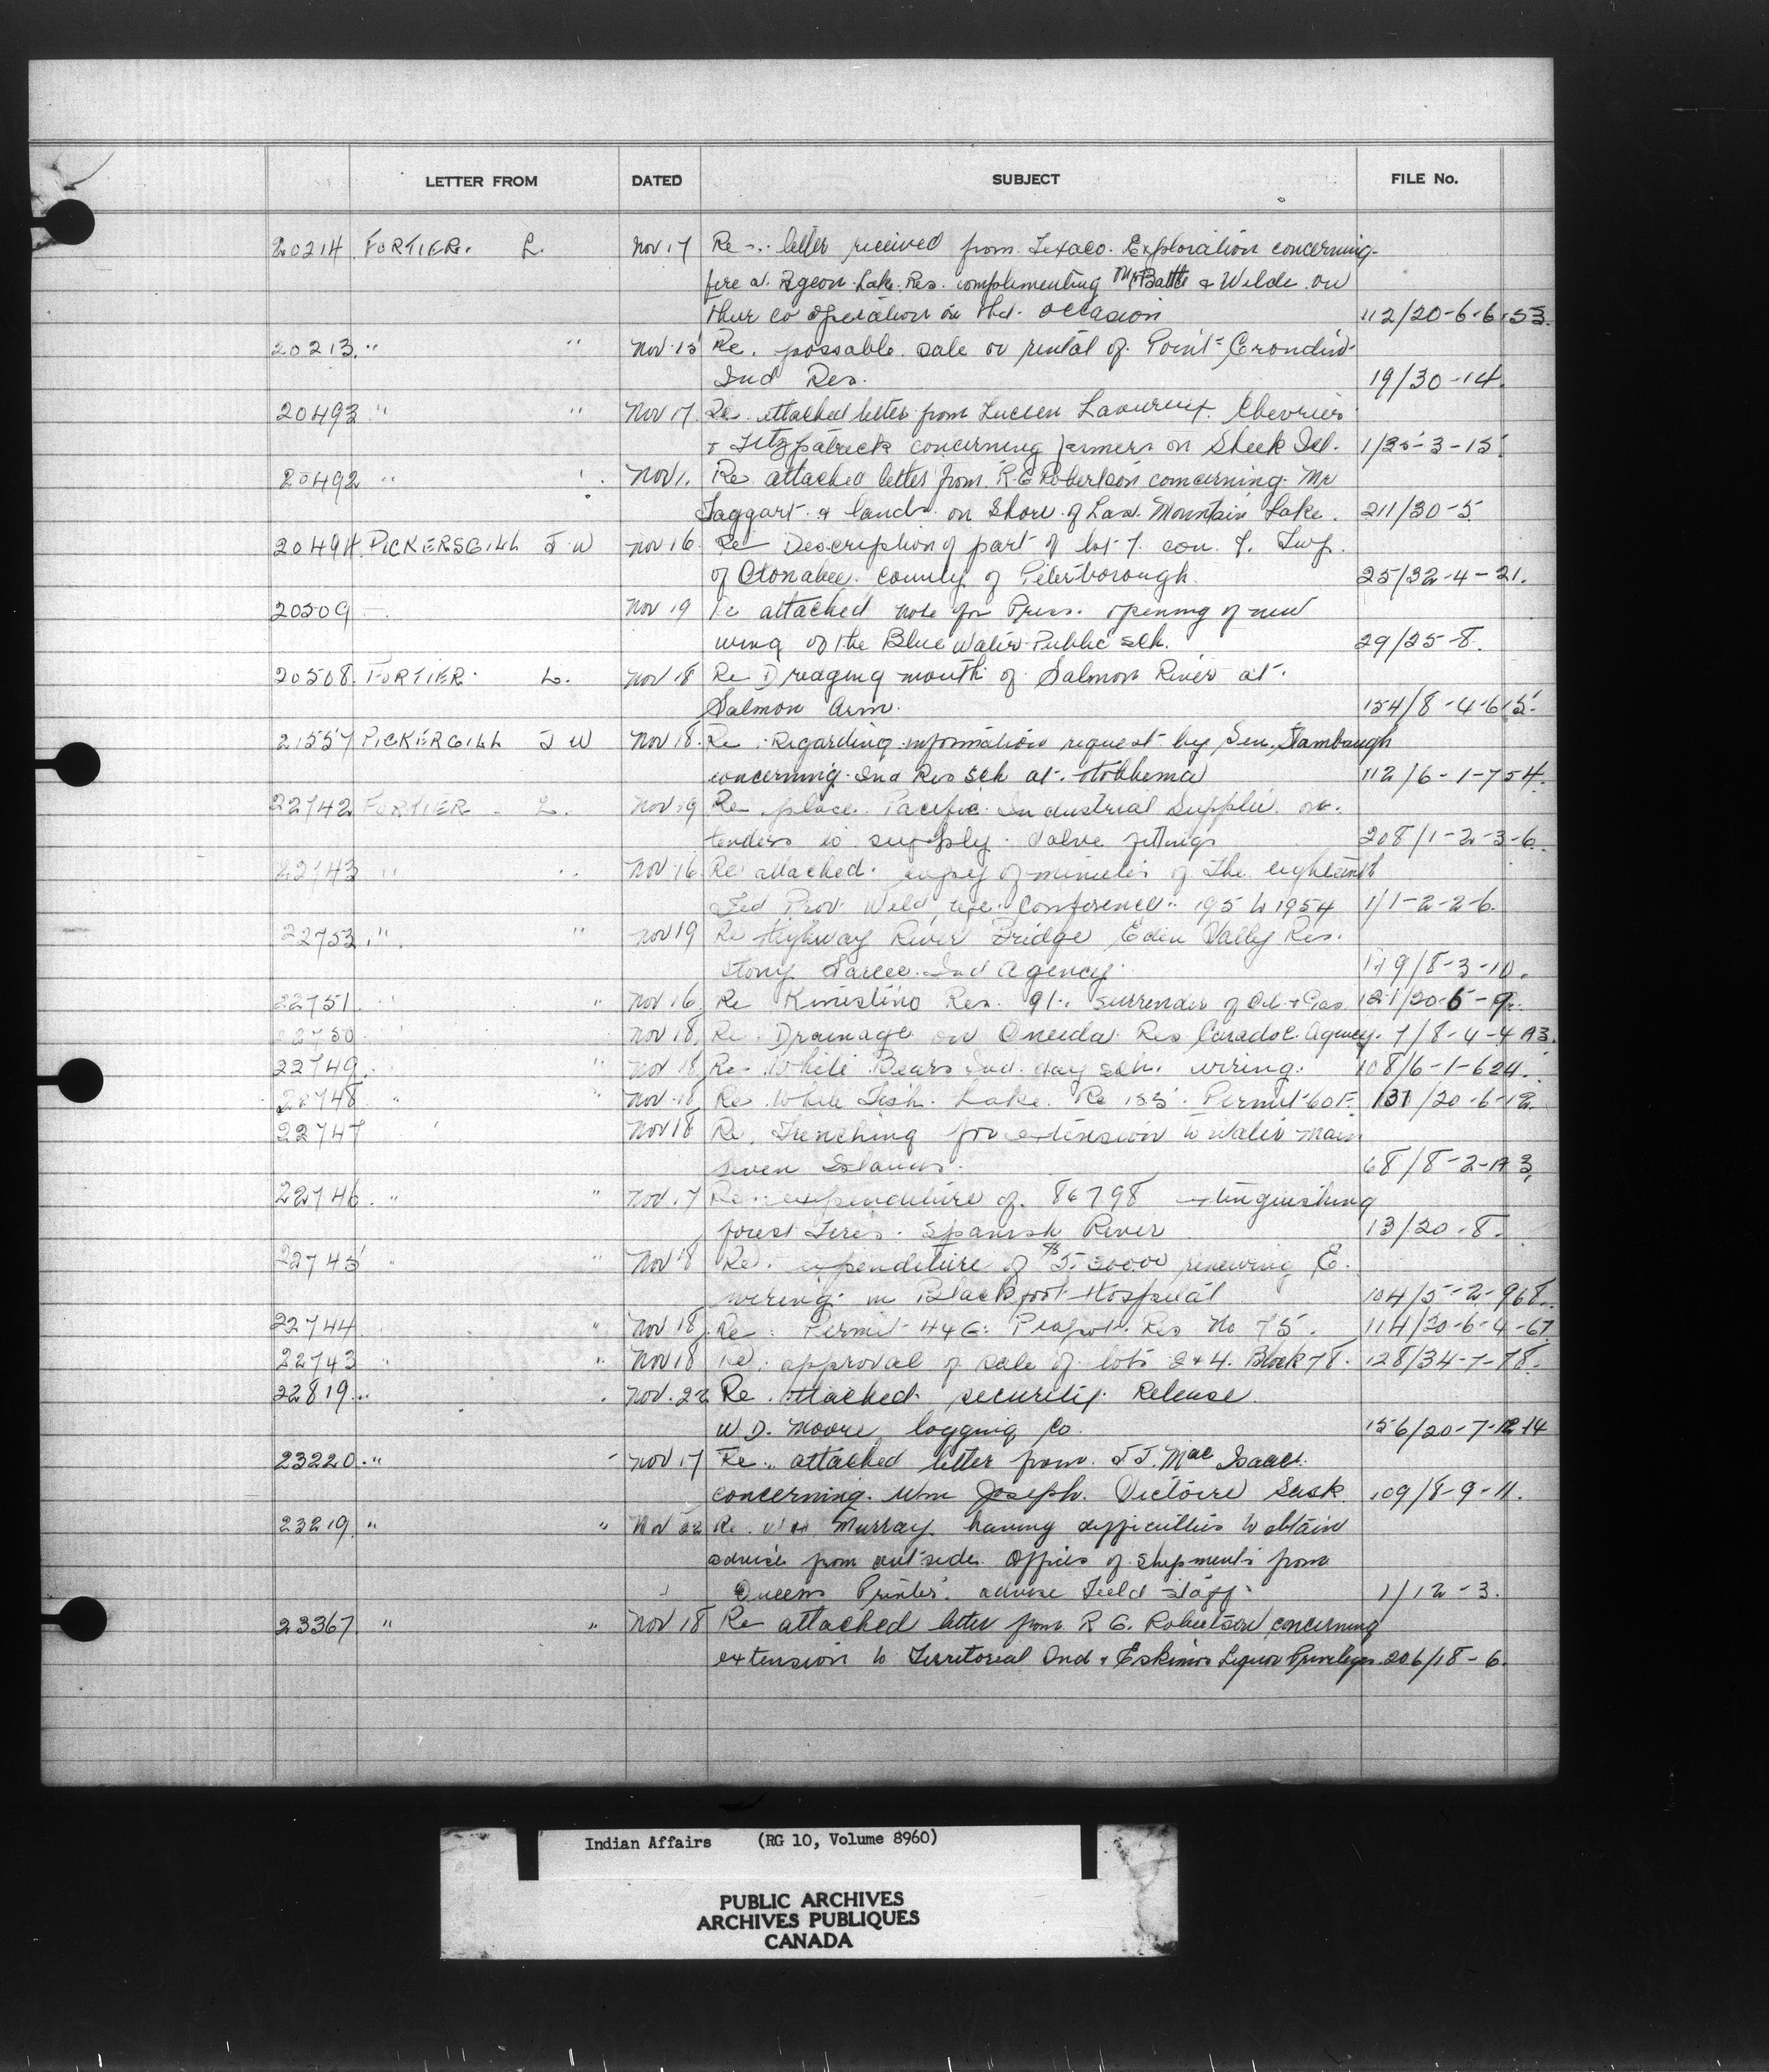 LETTER FROM DATED SUBJECT FILE No.
20214 FORTIER. L. Nov 17 Re letter received from Texaco Exploration concerning
fire at Pigeon Lake Res. complimenting Mr Battle & Welde on
their co operation on that occasion 112/20-6-6-153.
20213 " " Nov 15 Re. possable sale or rental of Point Grondin
Ind Res. 19/30-14.
20493 " " Nov 17. Re attached letter from Lucien Chevrier
& Fitzpatrick concerning farmers on Sheek Isl. 1/35-3-15
20492 " Nov 1. Re attached letter from R.G Robertson concerning Mr
Taggart & lands on shore of Last Mountain Lake. 211/30-5
20494 PICKERSGILL J W Nov 16 Re Description of part of lot 7 con. 9. Twp.
of Otonabee. County of Peterborough. 25/32-4-21.
20509 Nov 19 Re attached note for Press. opening of new
wing of the Blue Water Public sch. 29/25-8.
20508. FORTIER. L. Nov 18 Re Dredging mouth of Salmon River at
Salmon Arm. 154/8-4-6-15.
21557 PICKERGILL J W Nov 18. Re Regarding information request by Sen. Stambaugh
concerning Ind Res sch at Hobbema 112/6-1-754.
22742 FORTIER L. Nov 19 Re place Pacific Industrial Supplie on
tenders to supply Valve fittings 208/1-2-3-6.
22743 " " Nov 16 Re attached copy of minutes of the eighteenth
Fed Prov Wild life Conference 1954 1/1-2-2-6.
22753. " " Nov 19 Re Highway River Bridge Eden Vally Res.
Stony Sarcee Ind Agency. 179/8-3-10.
22751 " Nov 16 Re Kinistino Res. 91. surrender of Oil & Gas 121/20-5-9
22750 Nov 18, Re. Drainage on Oneida Res Caradoc Agency. 7/8-4-4 A3.
22749. " Nov 18 Re White Bears Ind. day sch. wiring. 108/6-1-624.
22748 " " Nov 18, Re White Fish Lake Re 155 Permit 60 F. 137/20-6-12
22747 Nov 18 Re. Trenching for extension to Water main
Seven Islands. 68/8-2-A3
22746 " " Nov. 17 Re expenditure of 86798 extinguishing
forest Fires. Spanish River 13/20-8.
22745 " " Nov 18 Re. expenditure of $ renewing E.
wireing in Blackfoot Hospital 104/5-2-968.
22744 " Nov 18. Re: Permit 44G: Piapot Res No 75. 114/20-6-4-67
22743 " " Nov 18 Re. approval of sale of lots 2 & 4. Block 78. 128/34-7-78.
22819 " Nov. 22 Re. attached security Release
W D. Moore logging Co. 156/20-7-12-14
23220 " " Nov 17 Re attached letter from J J. Mac Isaac
concerning Wm Joseph. Victoire Sask. 109/8-9-11.
23219 " " Nov 22 Re. Murray having difficulties to obtain
advise from out side Offices of shipments from
Queens Printer. advise Field staff. 1/12-3.
23367 " " Nov 18 Re attached letter from R G. Robertson concerning
extension to Territorial Ind & Eskimos Liquor Priveleges 206/18-6.
Indian Affairs (RG 10, Volume 8960)
PUBLIC ARCHIVES
ARCHIVES PUBLIQUES
CANADA